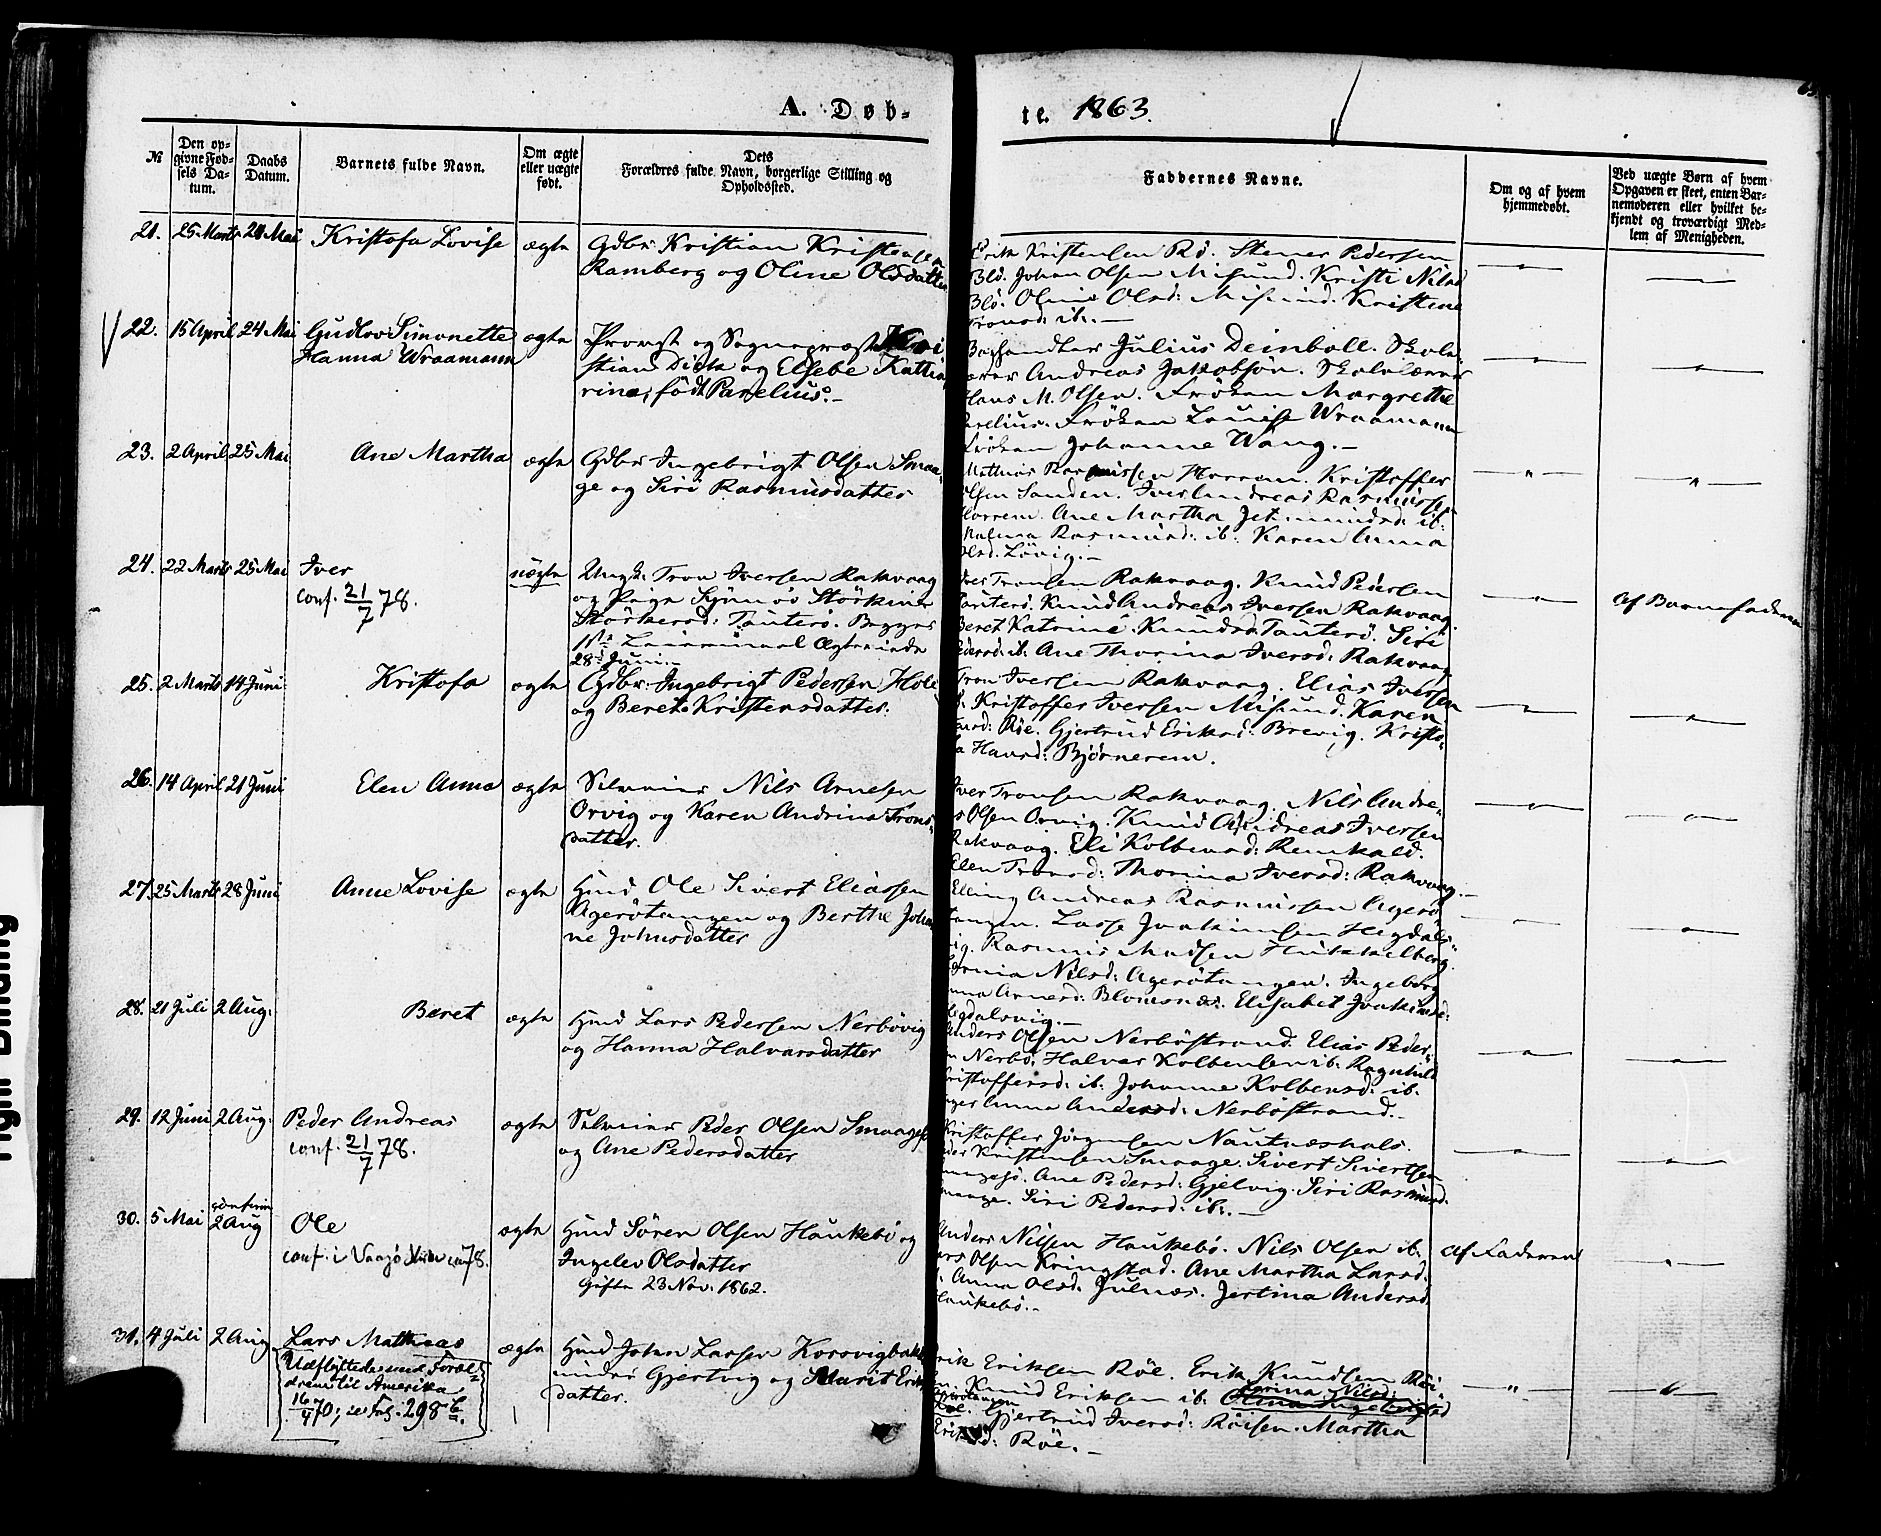 A. Døb-
te. 1863.
№
Den op-
givne Fød-
sels Da-
tum.
Daabs
Datum.
Barnets fulde Navn.
Om ægte
eller uægte
født.
Dets
Forældres fulde Navn, borgerlige Stilling og
Opholdssted.
Faddernes Navne.
Om og af hvem
hjemmedøbt.
Ved uægte Børn af hvem
Opgaven er skeet, enten Bar-
nemoderen eller hvilket be-
kjendt og troværdigt Med-
lem af Menigheden.
21. 25 Marts 24 Mai Kristofa Lovise ægte
Gdbr. Kristian Kristensen
Ramberg og Oline Olsdatter
Erik Kristensen Rø. Stener Pedersen
Blø. Johan Olsen Misund. Kristi Nilsd
Blø. Oline Olsd: Misund. Kristine
Tronsd: ib. —
22. 15 April 24 Mai Gudlov Simonette ægte
Hanna Wraamann
Provst og Sognepræst Kri
stian Dick og Elsebe Katha
rine, født Parelius. —
Boghandler Julius Deinboll. Skole-
lærer Andreas Jakobsen. Skolelærer
Hans M. Olsen. Frøken Margrethe
Parelius. Frøken Louise Wraamann
Frøken Johanne Wang. —
23. 2 April 25 Mai Ane Martha ægte
Gdbr Ingebrigt Olsen Smaa-
ge og Siri Rasmusdatter
Mathias Rasmussen Horrem. Kristoffer
Olsen Sanden. Iver Andreas Rasmussen
Horrem. Ane Martha Jetmundsd: ib.
Malina Rasmusd: ib. Karen Anna
Olsd. Løvig. —
24. 22 Marts 25 Mai Iver uægte
conf. 21/7 78.
Ungk: Tron Iversen Rakvaag
og Pige Synnøv Størkine
Størkersd: Tauterø. Begges
1ste Leiermaal Ægteviede
28de Juni. —
Iver Tronsen Rakvaag. Knud Pedersen
Tauterø. Knud Andreas Iversen Rakvaag.
Beret Katrine Knudsd Tauterø. Siri
Pedersd: ib. Ane Thorina Iversd: Rakvaag
Af Barnefaderen
25. 2 Marts 14 Juni Kristofa ægte
Gdbr: Ingebrigt Pedersen Hole
og Beret Kristensdatter.
Tron Iversen Rakvaag. Elias Iversen
ib. Kristoffer Iversen Misund. Karen
Røe. Gjertrud Eriksd: Brevig. Kristo-
fa Hansd: Bjørnerem.
26. 14 April 21 Juni Elen Anna ægte
Selveier Nils Arnesen
Orvig og Karen Andrina Trons-
datter.
Iver Tronsen Rakvaag. Nils Andre-
as Olsen Orvig. Knud Andreas Iversen
Rakvaag. Eli Kolbensd: Remkald.
Elen Tronsd: Thorina Iversd: Rakvaag. —
27. 25 Marts 28 Juni Anne Lovise ægte
Hmd Ole Sivert Eliassen
Agerøtangen og Berthe Johan
ne Johnsdatter
Elling Andreas Rasmussen Agerø
tangen. Lasse Joakimsen Hegdals-
vig. Rasmus Madsen Hukkelberg.
Nilsd: Agerøtangen. Ingeborg
Anna Arnesd: Blomsnæs. Elisabet Joakimsd:
Hegdalsvig. —
28. 21 Juli 2 Aug. Beret ægte
Hmd Lars Pedersen Nerbøvig
og Hanna Halvarsdatter
Anders Olsen Nerbøstrand. Elias Peder-
sen Nerbø. Halvar Kolbensen ib: Ragnhild
Kristoffersd: ib: Johanne Kolbensd: ib.
Inger Anna Andersd: Nerbøstrand. —
29. 12 Juni 2 Aug. Peder Andreas ægte
conf. 21/7 78.
Selveier Peder Olsen Smaagesø
og Ane Pedersdatter
Kristoffer Jørgensen Nautneshals.
Peder Kristensen Smaage. Sivert Sivertsen
Smaagesø. Ane Pedersd: Gjelvig. Siri Rasmusd.
Smaage. Siri Pedersd: ib: —
30. 5 Mai 2 Aug Ole ægte
conf. i Vaagø
78.
Hmd Søren Olsen Haukebø og
Ingelev Olsdatter
Gifte 23 Nov. 1862.
Anders Nilsen Haukebø. Nils Olsen ib.
Lars Olsen Kringstad. Ane Martha Larsd.
ib. Anna Olsd: Julnæs. Jertina Andersd.
Haukebø. —
Af Faderen
31. 4 Juli 2 Aug Lars Mathias ægte
Udflyttede med Foræl-
drene til Amerika
16/4 70; se Fol. 298 b.
Hmd Johan Larsen Korsvigbak
under Gjertvig og Marit Eriks
datter.
Erik Eriksen Røe. Erik Knudsen Røi-
sen. Knud Eriksen ib: Olina Ingebrigtsd
Karina Nilsd:
Røe. Gjertrud Iversd: Røisen. Martha
Eriksd: Røe. —